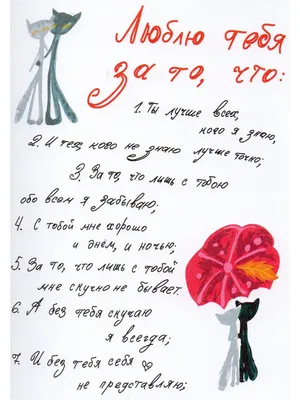 Люблю тебя
за то, что:
1. Ты лучше всех,
кого я знаю,
2. И тех, кого не знаю лучше точно;
3. За то, что лишь с тобою
обо всем я забываю;
4. С тобой мне хорошо
и днём, и ночью;
5. За то, что лишь с тобой
мне скучно не бывает.
6. А без тебя скучаю
я всегда;
7. И без тебя себя
не представляю;